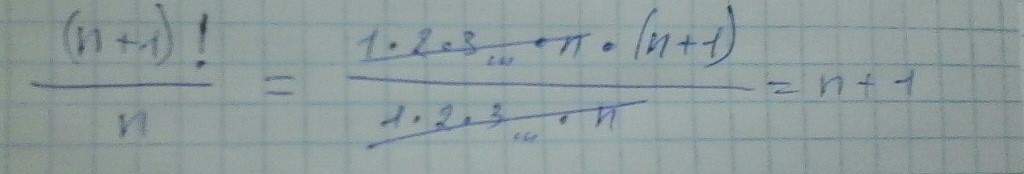 (n+1)! / n = 1·2·3...·n·(n+1) / 1·2·3...·n = n+1